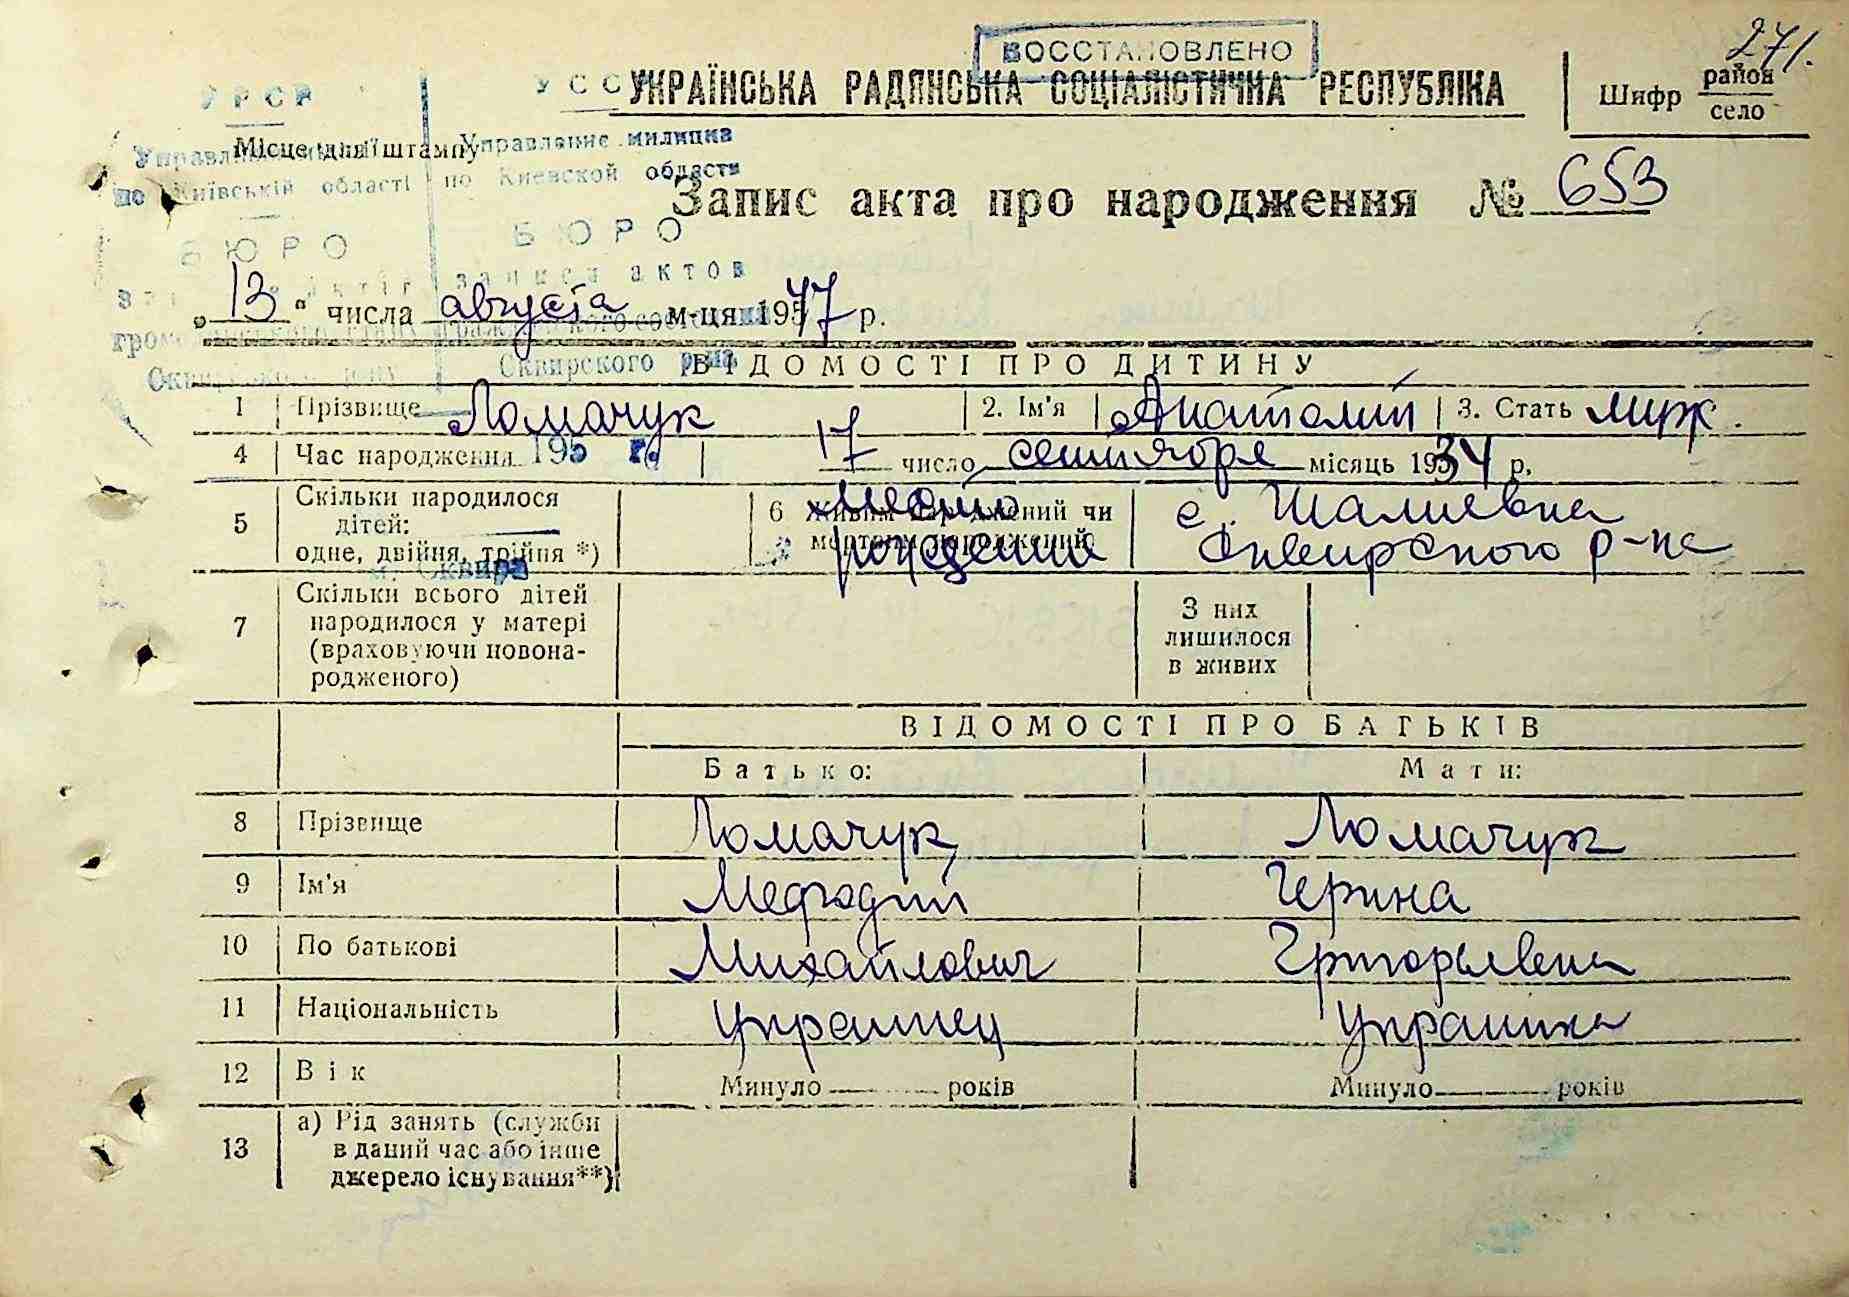 ВОССТАНОВЛЕНО
271.
УРСР УССР
УКРАЇНСЬКА РАДЯНСЬКА СОЦІАЛІСТИЧНА РЕСПУБЛІКА
Шифр район село
Місце для штампу
Управление милиции
по Київській області по Киевской области
Запис акта про народження № 653
БЮРО БЮРО
записи актов
„13“ числа августа м-ця 1957 77 р.
Сквирского р-на
ВІДОМОСТІ ПРО ДИТИНУ
1 Прізвище Ломачук 2. Ім'я Анатолий 3. Стать муж.
4 Час народження 195 г. 17 число сентября місяць 1934 р.
5 Скільки народилося дітей: одне, двійня, трійня *) 6 Живим народжений чи мертвим народжений место рождения с. Шалиевка Сквирского р-на
м. Сквира
7 Скільки всього дітей народилося у матері (враховуючи новонародженого) З них лишилося в живих
ВІДОМОСТІ ПРО БАТЬКІВ
Батько: Мати:
8 Прізвище Ломачук Ломачук
9 Ім'я Мефодий Герина
10 По батькові Михайлович Григорьевна
11 Національність Украинец Украинка
12 Вік Минуло років Минуло років
13 а) Рід занять (служби
в даний час або інше
джерело існування**)